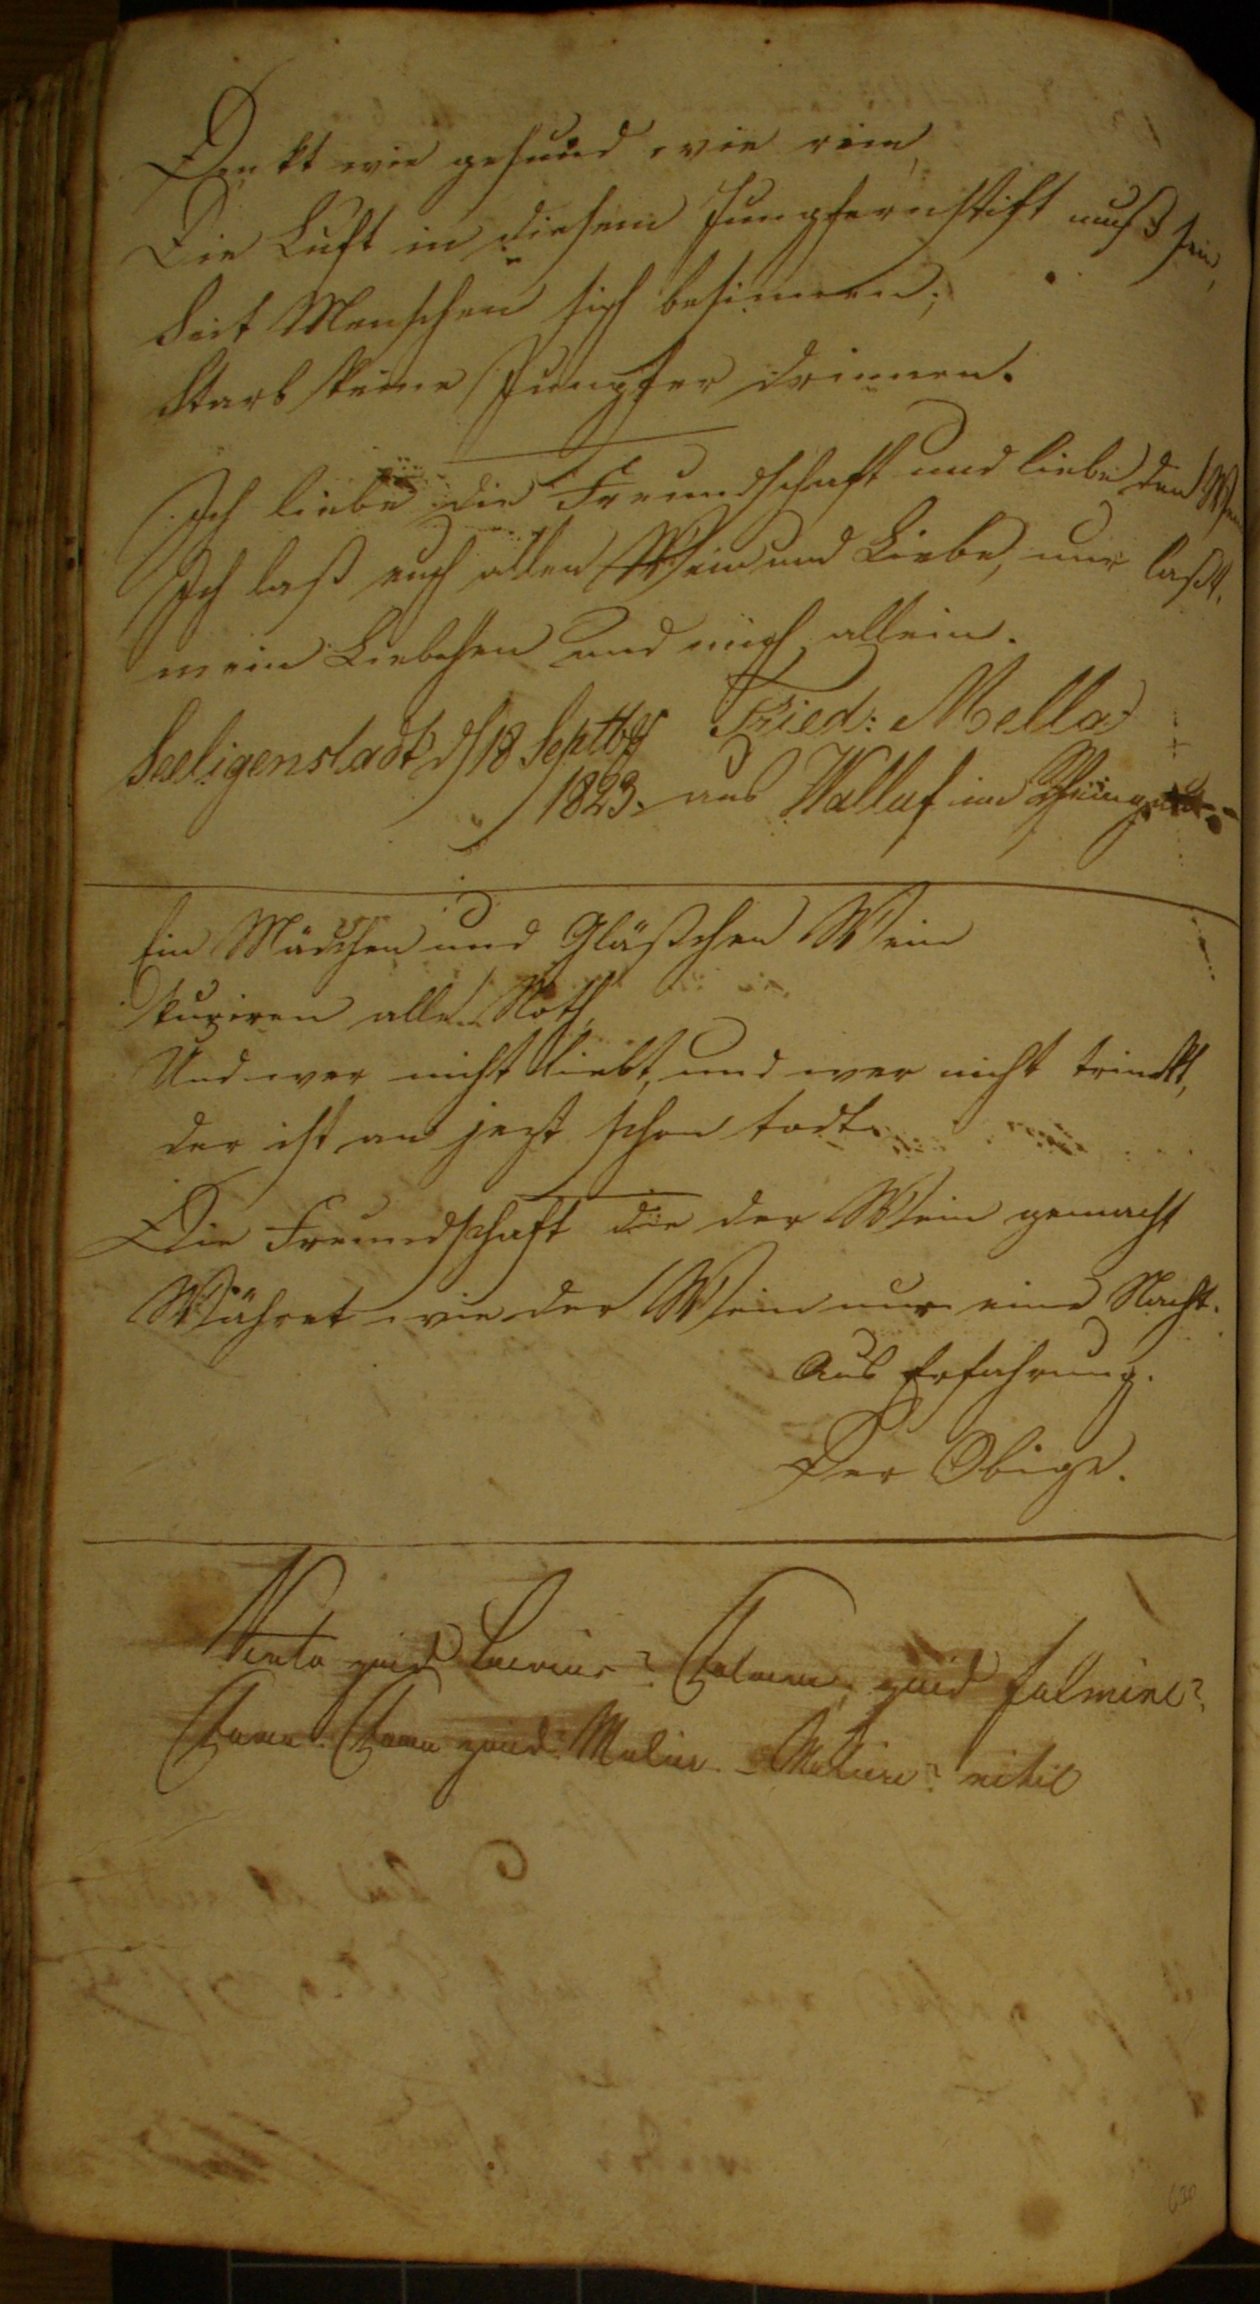 Denkt wie gesund, wie rein,
Die Luft in diesem Jungfernstift muß sein,
Seit Menschen sich besinnen,
Starb keine Jungfer drinnen.
Ich liebe die Freundschaft und liebe den Wein
Ich laß euch allen Wein und Liebe, nur laßt
mein Liebchen und mich allein.
Seeligenstadt d/18 Septbr Fried: Mella
1823. aus Walluf im Rheingau
Ein Mädchen und Gläßchen Wein
kuriren alle Noth,
Und wer nicht liebt, und wer nicht trinckt,
der ist an jezt schon todt.
Die Freundschaft die der Wein gemacht
Währet wie der Wein nur eine Nacht.
Aus Erfahrung.
Der Obige.
Vento quid levius? Fulmen, quid fulmine?
Fama. Fama quid Mulier - Muliere? nihil
630